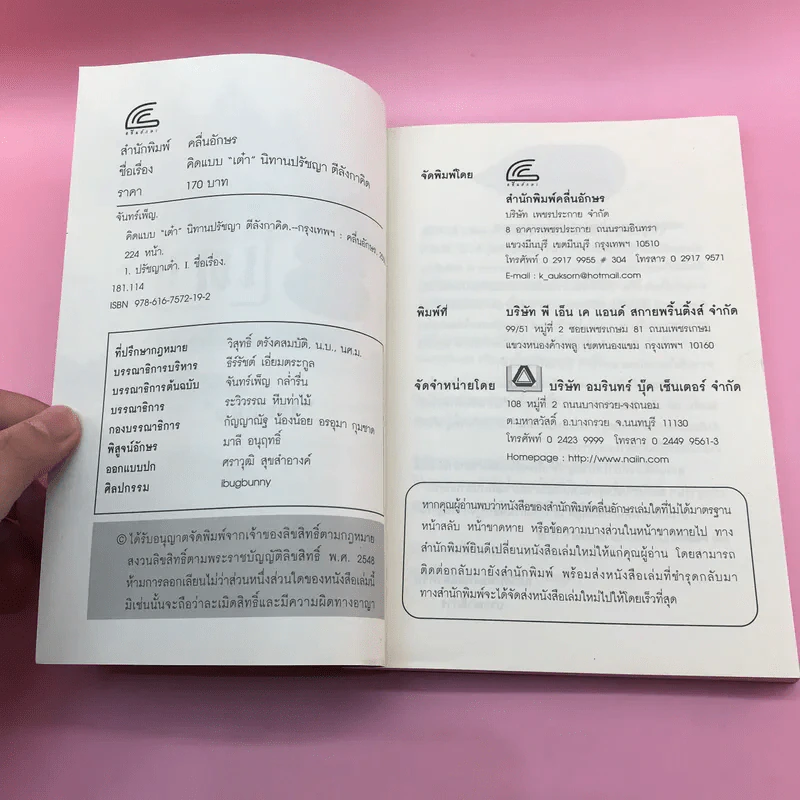 คลื่นอักษร
สำนักพิมพ์ คลื่นอักษร
ชื่อเรื่อง คิดแบบ "เต๋า" นิทานปรัชญา ตีลังกาคิด
ราคา 170 บาท
จันทร์เพ็ญ.
คิดแบบ "เต๋า" นิทานปรัชญา ตีลังกาคิด.--กรุงเทพฯ : คลื่นอักษร,
224 หน้า.
1. ปรัชญาเต๋า. I. ชื่อเรื่อง.
181.114
ISBN 978-616-7572-19-2
ที่ปรึกษากฎหมาย วิสุทธิ์ ตรังคสมบัติ, น.บ., นศ.ม.
บรรณาธิการบริหาร ธีร์รัชต์ เอี่ยมตระกูล
บรรณาธิการต้นฉบับ จันทร์เพ็ญ กล่ำรื่น
บรรณาธิการ ระวิวรรณ หีบท่าไม้
กองบรรณาธิการ กัญญาณัฐ น้องน้อย อรอุมา กุมชาด
พิสูจน์อักษร มาลี อนุฤทธิ์
ออกแบบปก ศราวุฒิ สุขสำอางค์
ศิลปกรรม ibugbunny
© ได้รับอนุญาตจัดพิมพ์จากเจ้าของลิขสิทธิ์ตามกฎหมาย
สงวนลิขสิทธิ์ตามพระราชบัญญัติลิขสิทธิ์ พ.ศ. 2548
ห้ามการลอกเลียนไม่ว่าส่วนหนึ่งส่วนใดของหนังสือเล่มนี้
มิเช่นนั้นจะถือว่าละเมิดสิทธิ์และมีความผิดทางอาญา
จัดพิมพ์โดย
คลื่นอักษร
สำนักพิมพ์คลื่นอักษร
บริษัท เพชรประกาย จำกัด
8 อาคารเพชรประกาย ถนนรามอินทรา
แขวงมีนบุรี เขตมีนบุรี กรุงเทพฯ 10510
โทรศัพท์ 0 2917 9955 # 304 โทรสาร 0 2917 9571
E-mail : k_auksorn@hotmail.com
พิมพ์ที่ บริษัท พี เอ็น เค แอนด์ สกายพริ้นติ้งส์ จำกัด
99/51 หมู่ที่ 2 ซอยเพชรเกษม 81 ถนนเพชรเกษม
แขวงหนองค้างพลู เขตหนองแขม กรุงเทพฯ 10160
จัดจำหน่ายโดย บริษัท อมรินทร์ บุ๊ค เซ็นเตอร์ จำกัด
108 หมู่ที่ 2 ถนนบางกรวย-จงถนอม
ต.มหาสวัสดิ์ อ.บางกรวย จ.นนทบุรี 11130
โทรศัพท์ 0 2423 9999 โทรสาร 0 2449 9561-3
Homepage : http://www.naiin.com
หากคุณผู้อ่านพบว่าหนังสือของสำนักพิมพ์คลื่นอักษรเล่มใดที่ไม่ได้มาตรฐาน
หน้าสลับ หน้าขาดหาย หรือข้อความบางส่วนในหน้าขาดหายไป ทาง
สำนักพิมพ์ยินดีเปลี่ยนหนังสือเล่มใหม่ให้แก่คุณผู้อ่าน โดยสามารถ
ติดต่อกลับมายังสำนักพิมพ์ พร้อมส่งหนังสือเล่มที่ชำรุดกลับมา
ทางสำนักพิมพ์จะได้จัดส่งหนังสือเล่มใหม่ไปให้โดยเร็วที่สุด